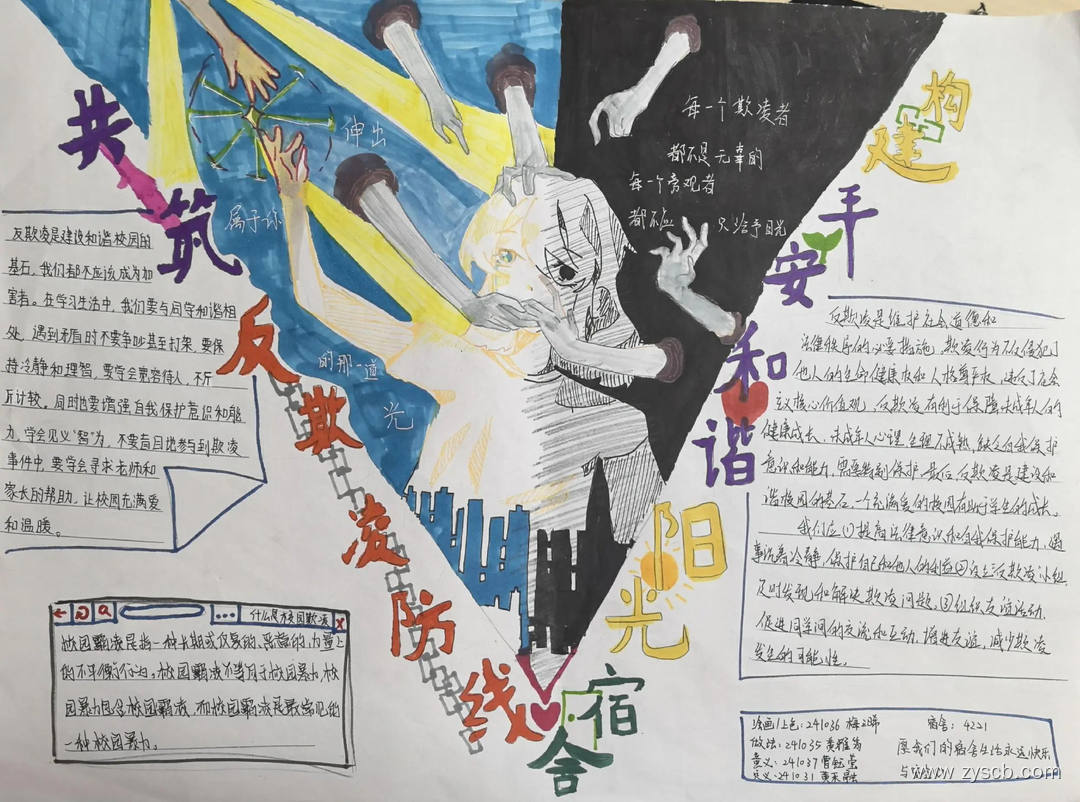 共筑
反欺凌防线
构建
平安
和谐
阳光
宿舍
伸出
属于你
的那一道
光
每一个欺凌者
都不是无辜的
每一个旁观者
都不应 只给予目光
反欺凌是建设和谐校园的
基石,我们都不应该成为加
害者。在学习生活中,我们要与同学和谐相
处,遇到矛盾时不要争吵甚至打架,要保
持冷静和理智,要学会宽容待人,不斤
斤计较。同时也要增强自我保护意识和能
力,学会见义“智”为,不要盲目地参与到欺凌
事件中,要学会寻求老师和
家长的帮助,让校园充满爱
和温暖。
什么是校园欺凌
校园霸凌是指一种长期或反复的、恶意的、力量上
的不平衡行为。校园霸凌不等同于校园暴力,校
园暴力包含校园霸凌,而校园霸凌是最常见的
一种校园暴力。
反欺凌是维护社会道德和
法律秩序的必要措施,欺凌行为不仅侵犯了
他人的生命健康权和人格尊严权,违反了社会
主义核心价值观,反欺凌有利于保障未成年人的
健康成长,未成年人心理、生理不成熟,缺乏自我保护
意识和能力,需要特别保护。最后,反欺凌是建设和
谐校园的基石,一个充满爱的校园有助于学生的成长。
我们应①提高法律意识和自我保护能力,遇
事沉着冷静,保护自己和他人的利益②设立反欺凌小组,
及时发现和解决欺凌问题,③组织友谊活动,
促进同学间的交流和互动,增进友谊,减少欺凌
发生的可能性。
绘画/上色:241036 梅
宿舍:4221
做法:241035 黄雅
愿我们的宿舍生活永远快乐
意义:241037 曹钰莹
意义:241031 黄
与
www.zyscb.com